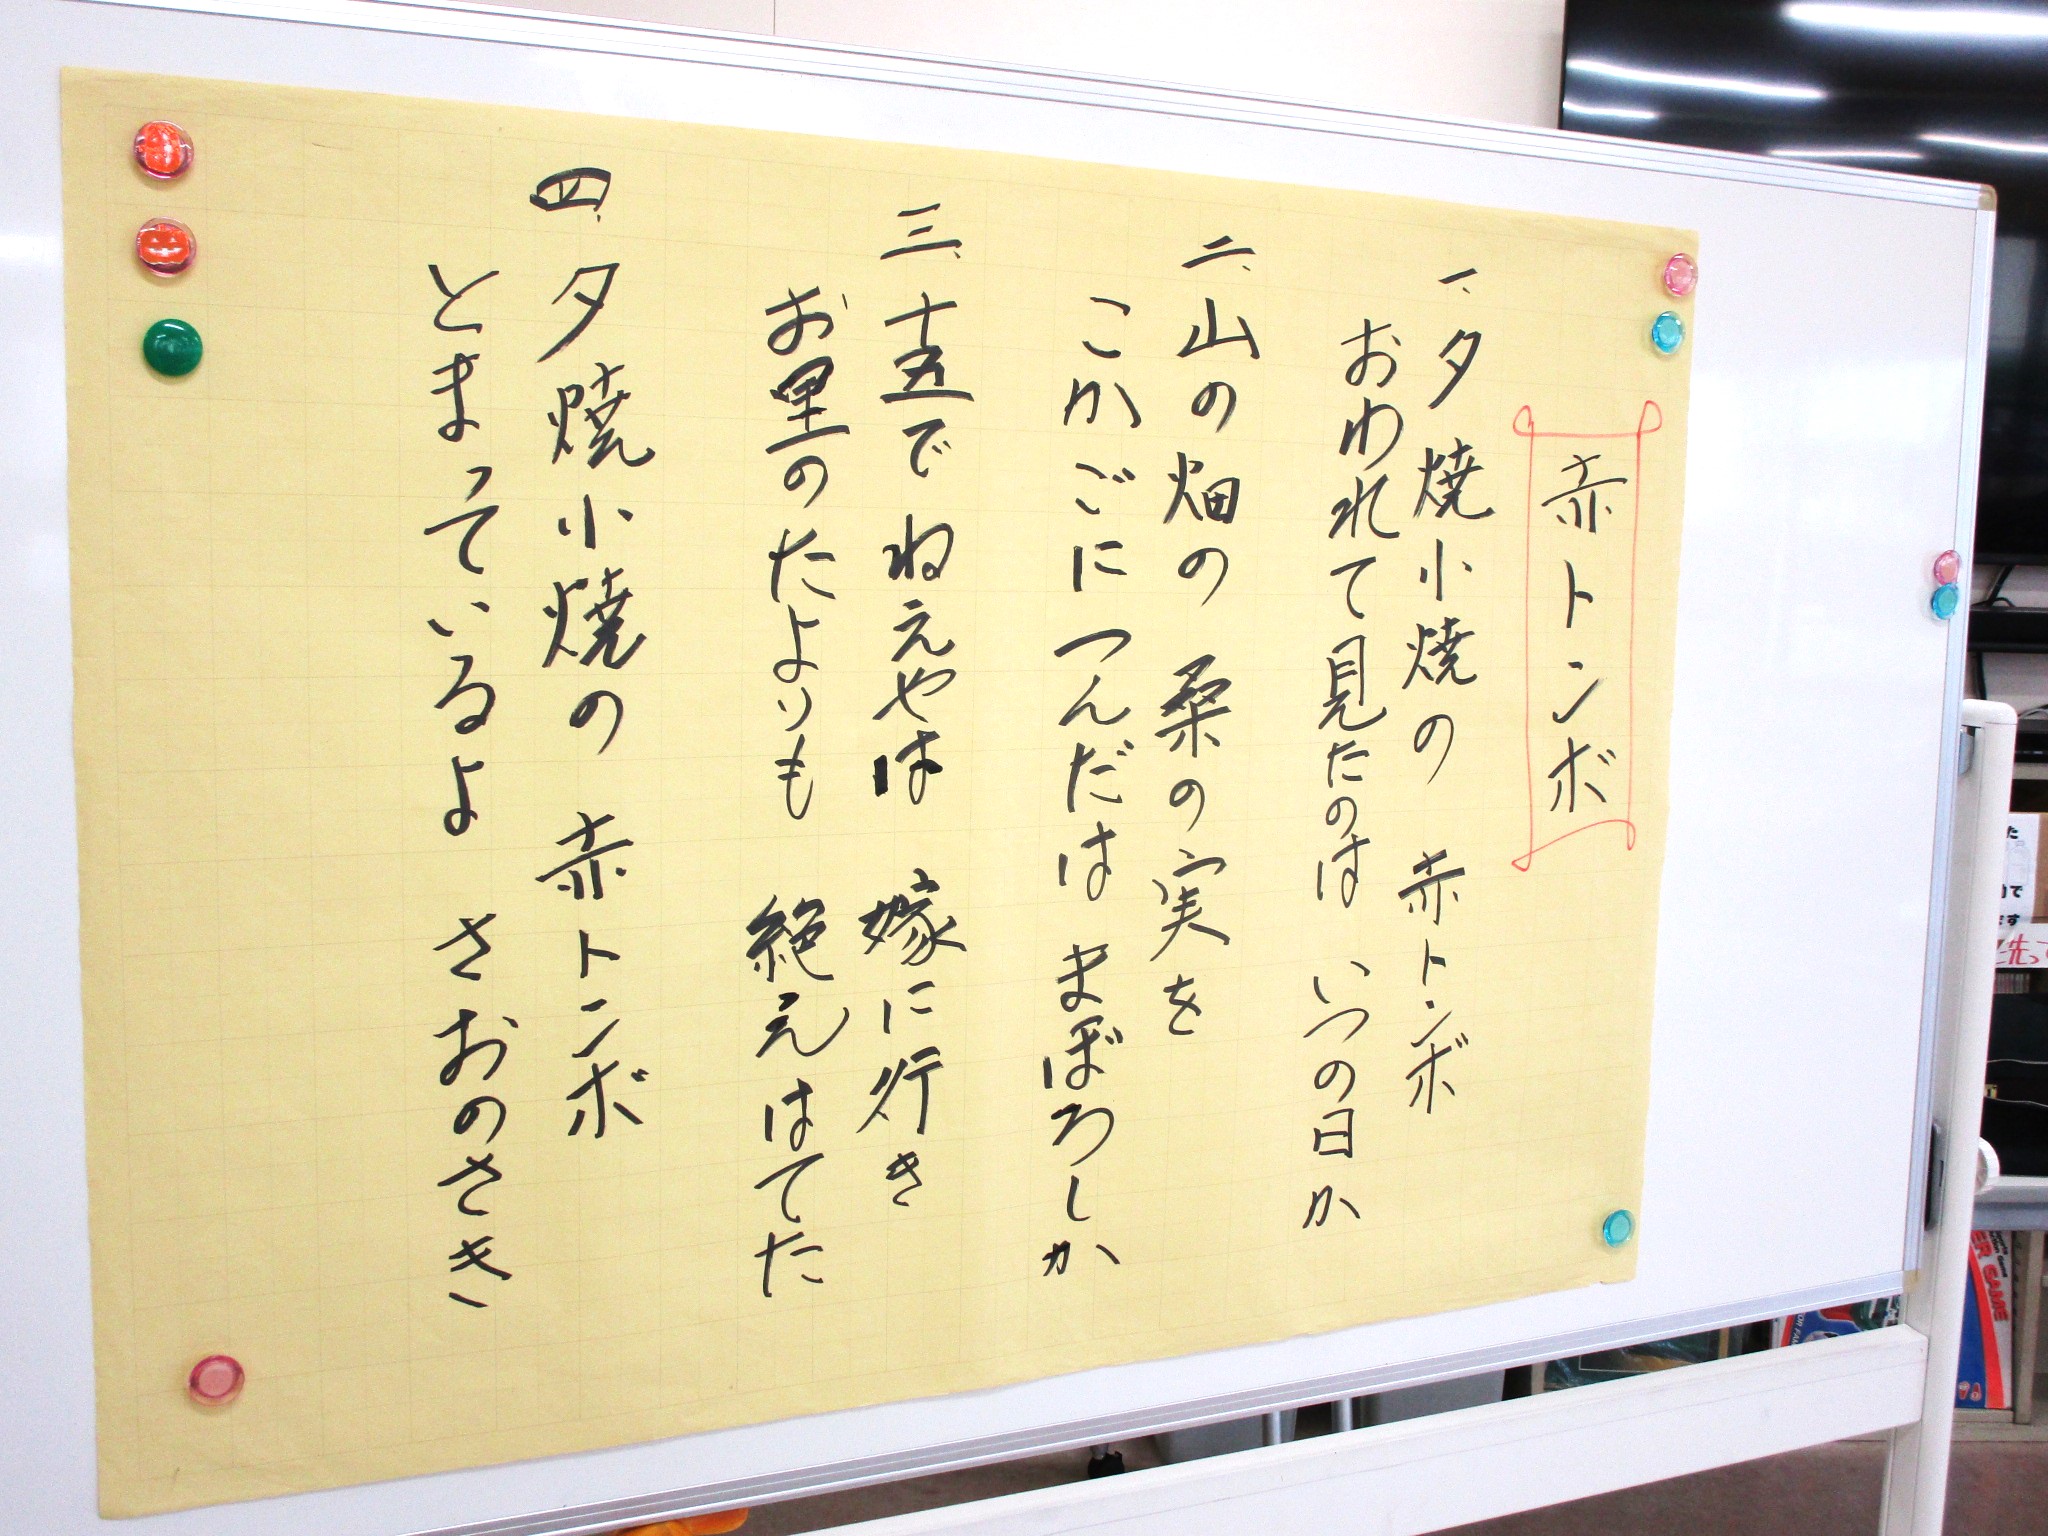 赤トンボ
一、夕焼小焼の 赤トンボ
おわれて見たのは いつの日か
二、山の畑の 桑の実を
こかごに つんだは まぼろしか
三、十五で ねえやは 嫁に行き
お里のたよりも 絶えはてた
四、夕焼小焼の 赤トンボ
とまっているよ さおのさき
た
で
ます
洗って
ER GAME